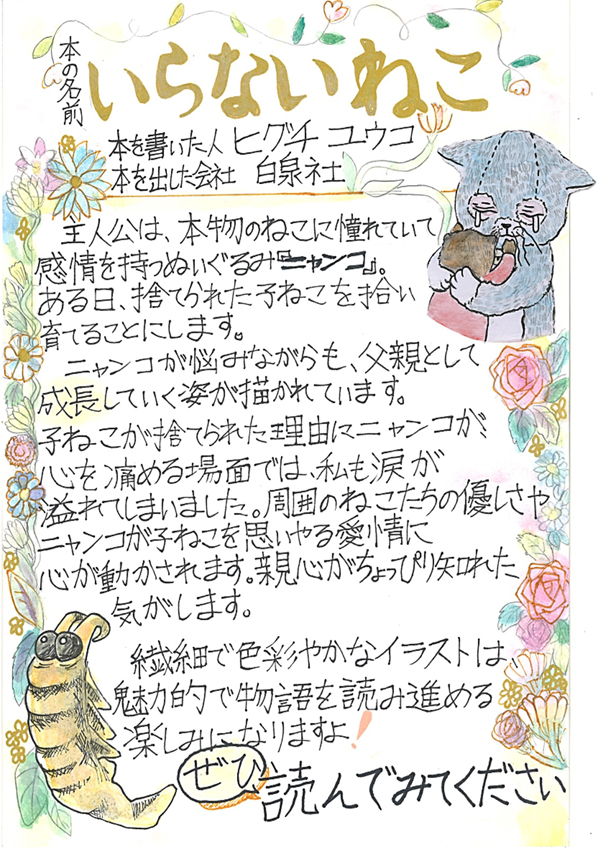 本の名前
いらないねこ
本を書いた人 ヒグチ ユウコ
本を出した会社 白泉社
主人公は、本物のねこに憧れていて
感情を持つぬいぐるみ『ニャンコ』。
ある日、捨てられた子ねこを拾い
育てることにします。
ニャンコが悩みながらも、父親として
成長していく姿が描かれています。
子ねこが捨てられた理由にニャンコが、
心を痛める場面では、私も涙が
溢れてしまいました。周囲のねこたちの優しさや
ニャンコが子ねこを思いやる愛情に
心が動かされます。親心がちょっぴり知れた
気がします。
繊細で色彩やかなイラストは、
魅力的で物語を読み進める
楽しみになりますよ!
ぜひ読んでみてください